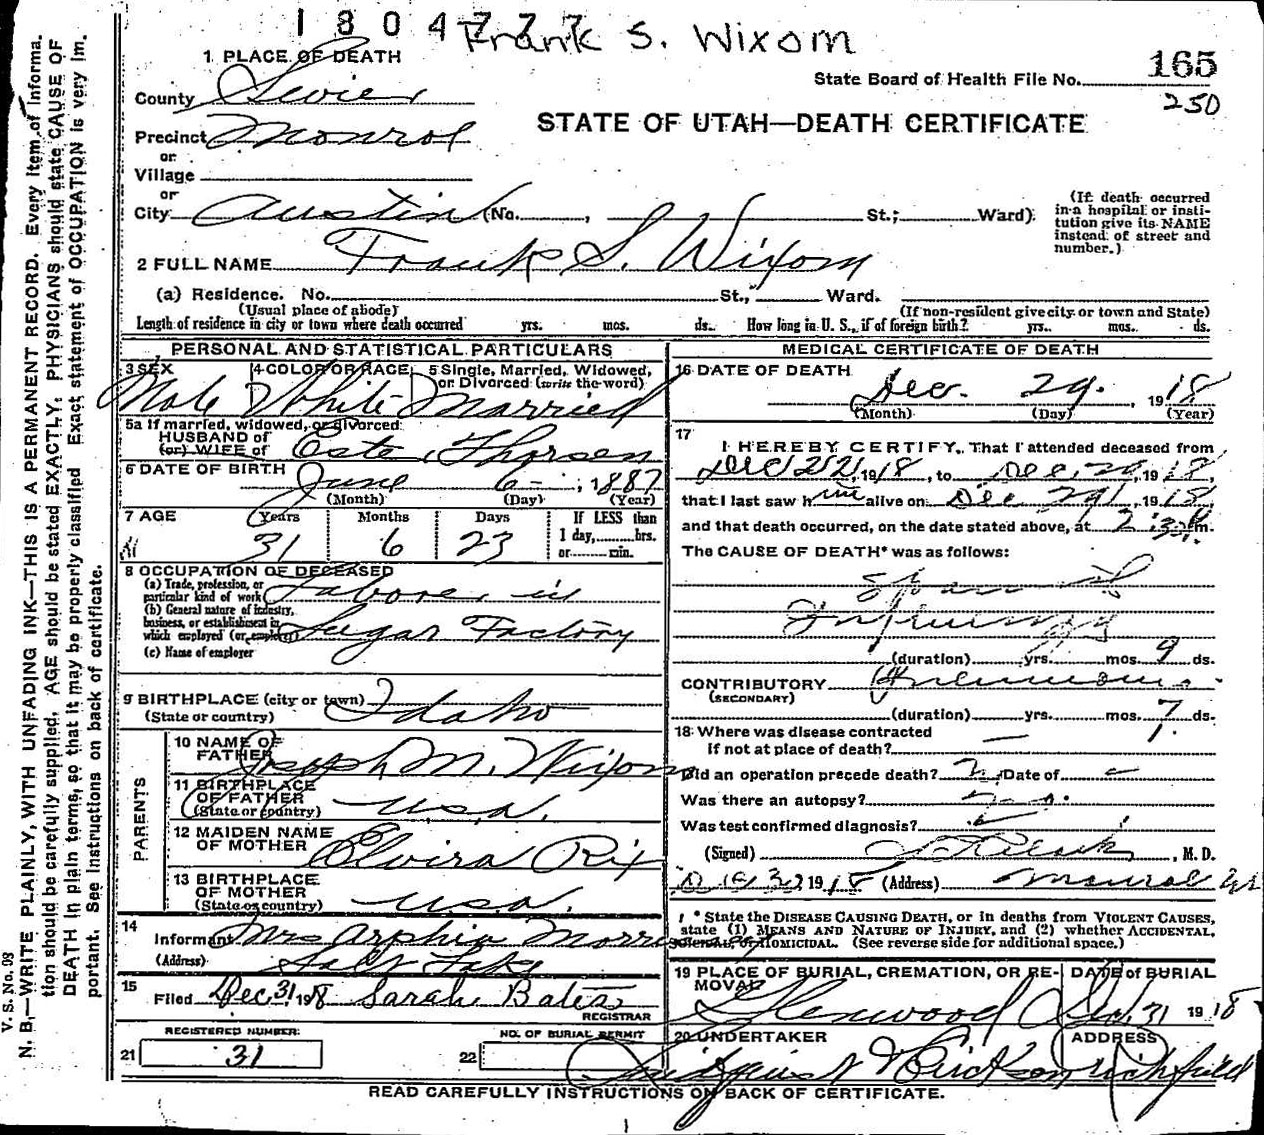 1804777 Frank S. Wixom
165
250
State Board of Health File No.
STATE OF UTAH—DEATH CERTIFICATE
1 PLACE OF DEATH
County Sevier
Precinct Monroe
or
Village
or
City Austin (No. , St.; Ward)
(If death occurred in a hospital or institution give its NAME instead of street and number.)
2 FULL NAME Frank S. Wixom
(a) Residence. No. St., Ward.
(Usual place of abode) (If non-resident give city or town and State)
Length of residence in city or town where death occurred yrs. mos. ds. How long in U. S., if of foreign birth? yrs. mos. ds.
PERSONAL AND STATISTICAL PARTICULARS
3 SEX 4 COLOR OR RACE 5 Single, Married, Widowed, or Divorced (write the word)
Male White Married
5a If married, widowed, or divorced
HUSBAND of
(or) WIFE of Thorsen
6 DATE OF BIRTH June 6 1887
(Month) (Day) (Year)
7 AGE Years Months Days If LESS than
1 day, hrs.
or min.
31 6 23
8 OCCUPATION OF DECEASED
(a) Trade, profession, or particular kind of work Laborer in
(b) General nature of industry, business, or establishment in which employed (or employer) Sugar Factory
(c) Name of employer
9 BIRTHPLACE (city or town) Idaho
(State or country)
PARENTS
10 NAME OF FATHER Joseph M. Wixom
11 BIRTHPLACE OF FATHER (State or country) U.S.A.
12 MAIDEN NAME OF MOTHER Elvira Rix
13 BIRTHPLACE OF MOTHER (State or country) U.S.A.
14
Informant Mrs Arphia
(Address) Salt Lake
15
Filed Dec 31, 1918 Sarah Bates
REGISTRAR
REGISTERED NUMBER NO. OF BURIAL PERMIT
21 31 22
MEDICAL CERTIFICATE OF DEATH
16 DATE OF DEATH
Dec. 29. , 1918
(Month) (Day) (Year)
17
I HEREBY CERTIFY, That I attended deceased from
Dec 1918, to Dec. 29, 1918,
that I last saw him alive on Dec 29, 1918
and that death occurred, on the date stated above, at m.
The CAUSE OF DEATH* was as follows:
Spanish
Influenza
(duration) yrs. mos. 9 ds.
CONTRIBUTORY Pneumonia
(SECONDARY)
(duration) yrs. mos. 7 ds.
18 Where was disease contracted
if not at place of death?
Did an operation precede death? Date of
Was there an autopsy? no.
Was test confirmed diagnosis?
(Signed) , M. D.
1918 (Address) Monroe
* State the DISEASE CAUSING DEATH, or in deaths from VIOLENT CAUSES, state (1) MEANS AND NATURE OF INJURY, and (2) whether ACCIDENTAL, SUICIDAL, or HOMICIDAL. (See reverse side for additional space.)
19 PLACE OF BURIAL, CREMATION, OR REMOVAL DATE of BURIAL
Glenwood 31 1918
20 UNDERTAKER ADDRESS
Richfield
READ CAREFULLY INSTRUCTIONS ON BACK OF CERTIFICATE.
V. S. No. 98
N. B.—WRITE PLAINLY, WITH UNFADING INK—THIS IS A PERMANENT RECORD. Every item of information should be carefully supplied. AGE should be stated EXACTLY. PHYSICIANS should state CAUSE OF DEATH in plain terms, so that it may be properly classified. Exact statement of OCCUPATION is very important. See instructions on back of certificate.